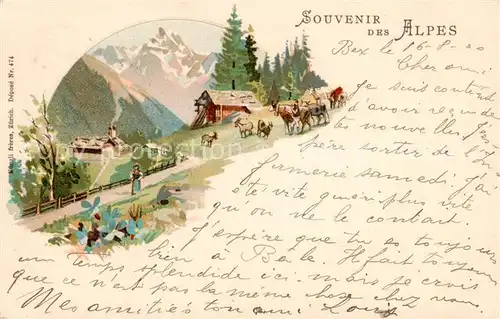 SOUVENIR
DES ALPES
Bex le 16-8-20
Cher ami
Je suis content
d'avoir reçu de
tes nouvelles
père sortir de l'in
firmerie samedi, j'ai
été vite guéri plus vite
qu'on ne le contait.
J'espère que tu es toujours
bien à Bale. Il fait toujours
un temps splendide ici. mais je crois
que ce n'est pas la même chose chez vous.
Mes amitiés ton ami Louis
Künzli Frères, Zürich. Déposé Nr. 474